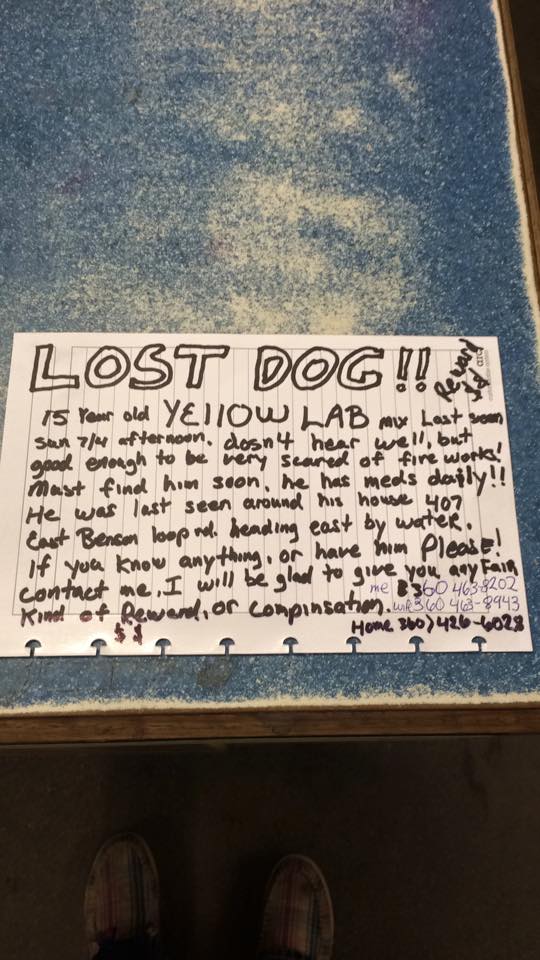 LOST DOG!!
Reward
$$
15 Year old YEllOW LAB mix Last seen
sun 7/4 afternoon. dosn't hear well, but
good enough to be very scared of fire works!
Must find him soon, he has meds daily!!
He was last seen around his house 407
East Benson loop rd. heading east by water.
If you know anything, or have him Please!
contact me, I will be glad to give you any Fair
Kind of Reward, or Compinsation.
$$
me 360 463-8202
wife 360 463-8943
Home 360) 426-6028